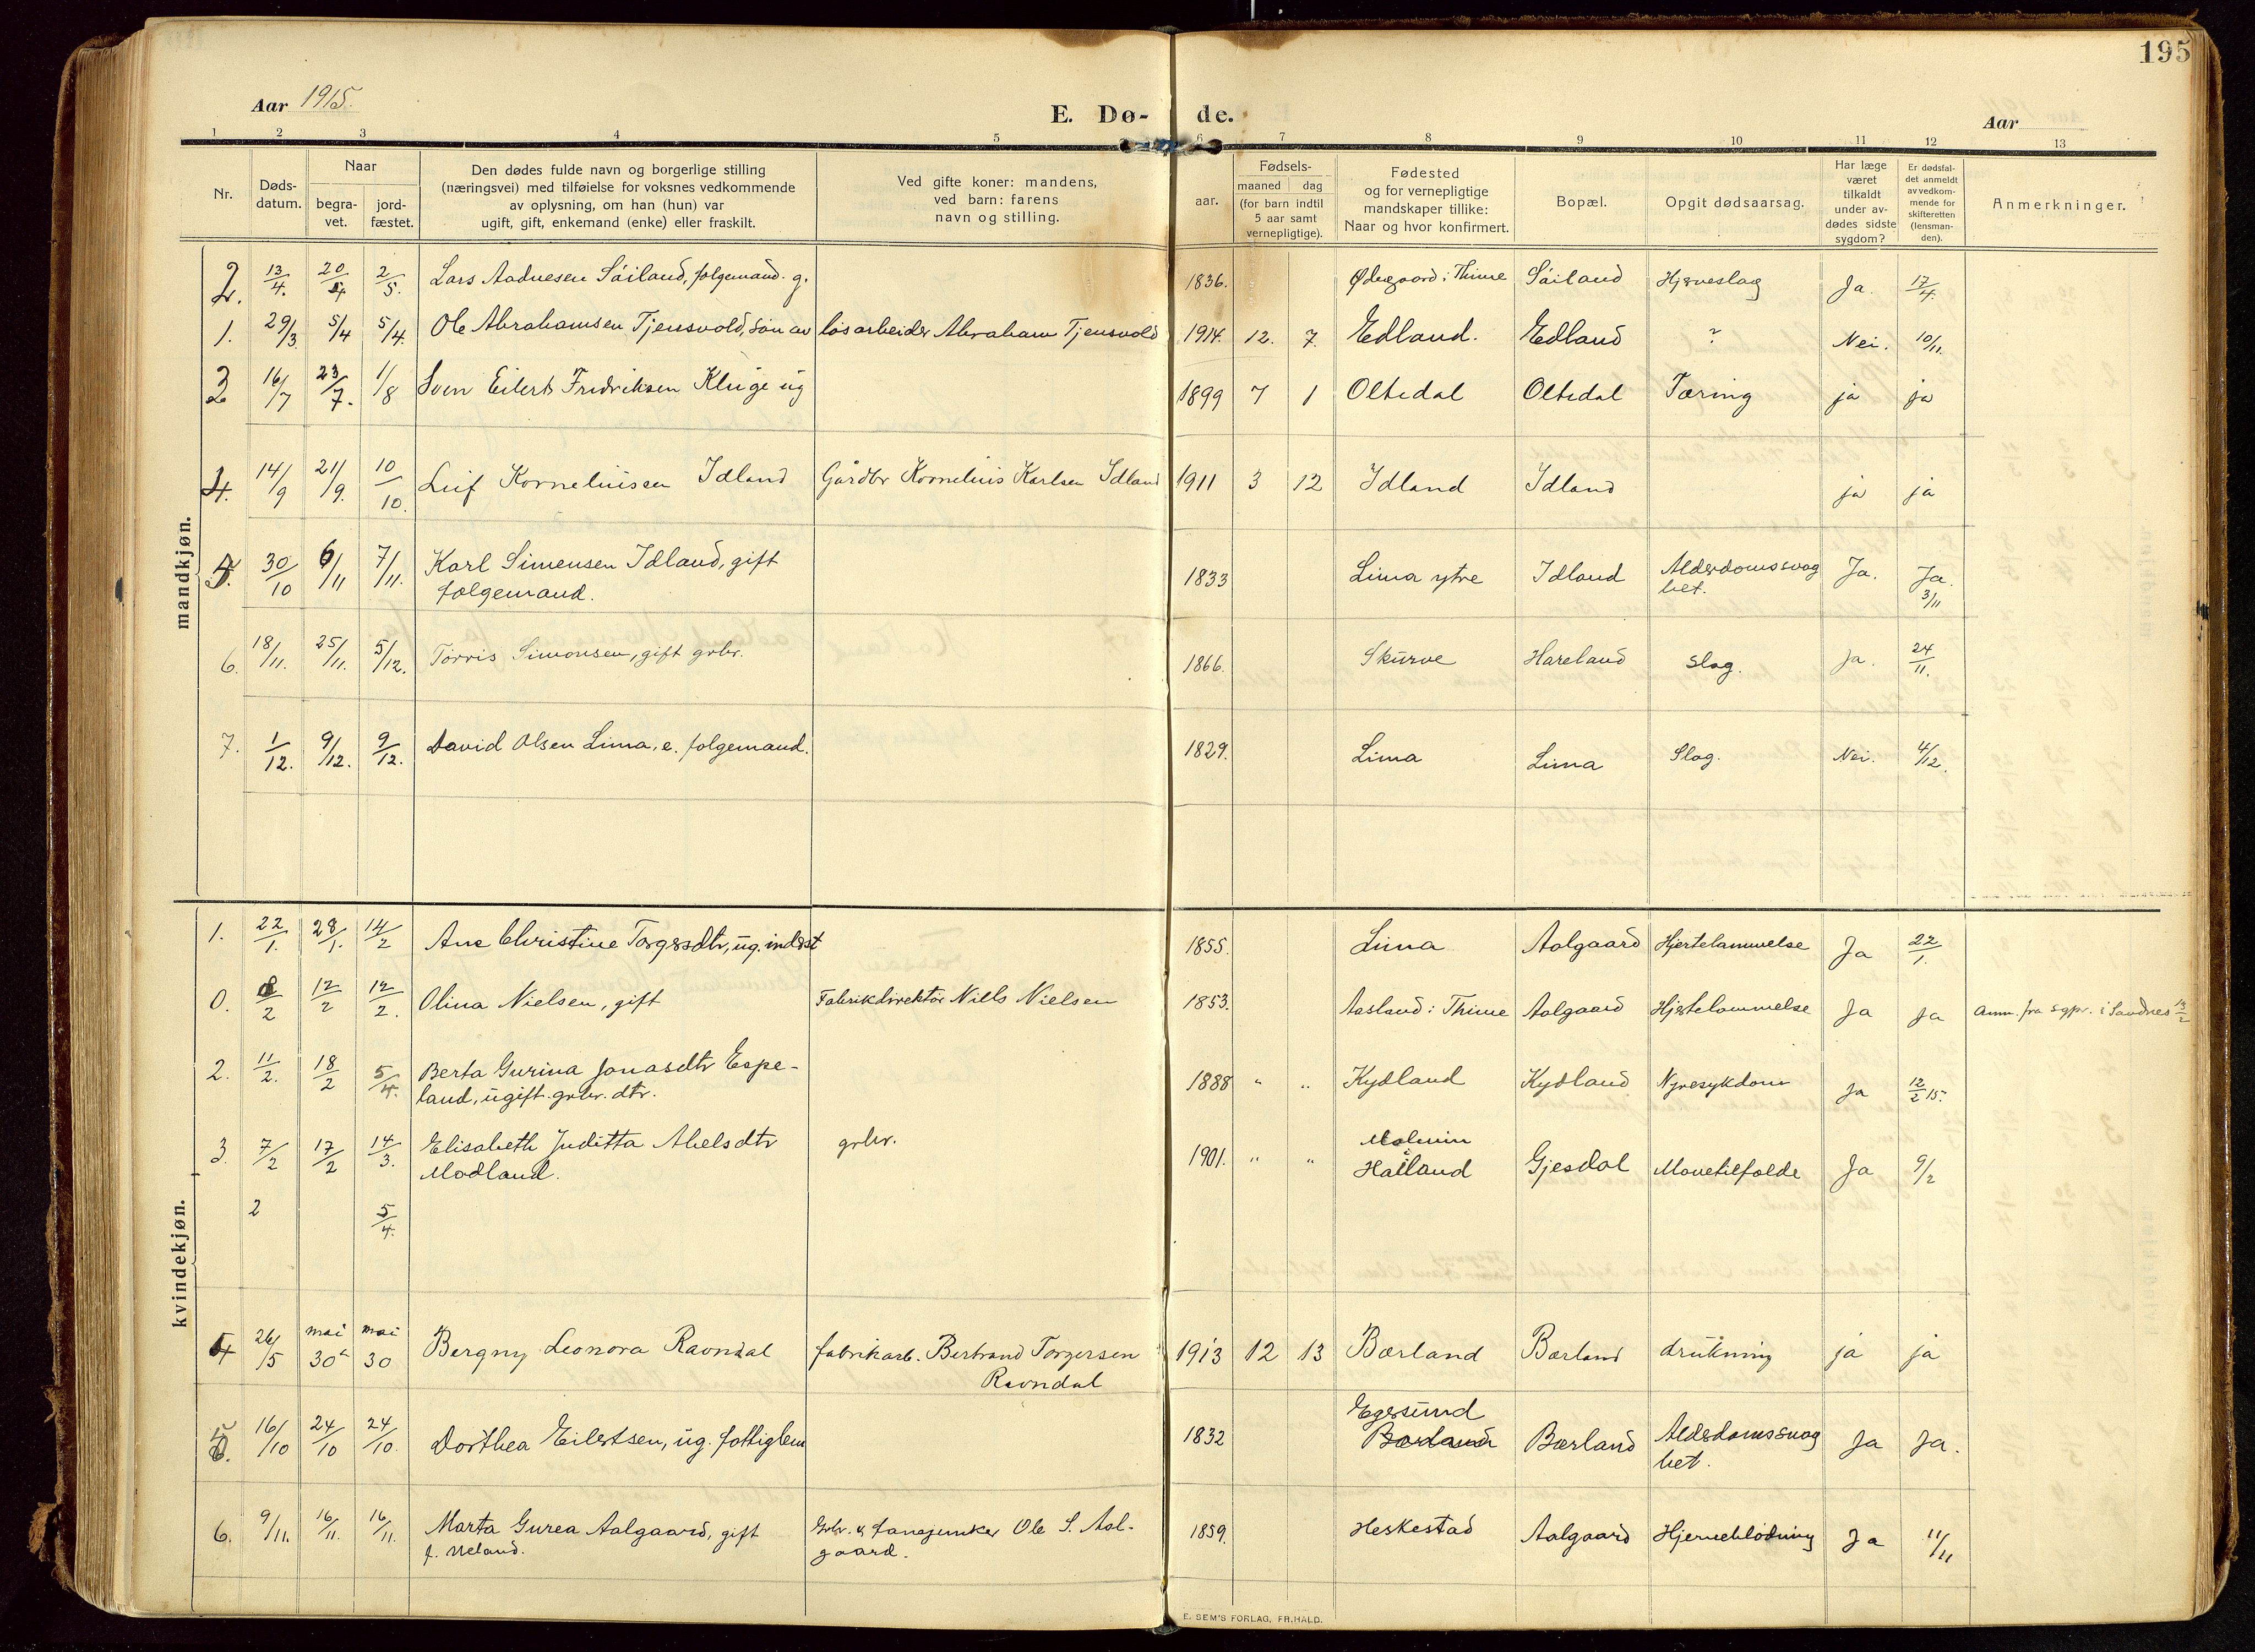 195
Aar 1915.
E. Dø- de.
Aar
1 2 3 4 5 6 7 8 9 10 11 12 13
Nr.
Døds-
datum.
Naar
begra-
vet.
jord-
fæstet.
Den dødes fulde navn og borgerlige stilling
(næringsvei) med tilføielse for voksnes vedkommende
av oplysning, om han (hun) var
ugift, gift, enkemand (enke) eller fraskilt.
Ved gifte koner: mandens,
ved barn: farens
navn og stilling.
Fødsels-
aar.
maaned dag
(for barn indtil
5 aar samt
vernepligtige).
Fødested
og for vernepligtige
mandskaper tillike:
Naar og hvor konfirmert.
Bopæl.
Opgit dødsaarsag.
Har læge
været
tilkaldt
under av-
dødes sidste
sygdom?
Er dødsfal-
det anmeldt
av vedkom-
mende for
skifteretten
(lensman-
den).
Anmerkninger.
mandkjøn.
2. 13/4. 20/4 2/5. Lars Aadnesen Söiland, folgemand. g. 1836. Ødegaard i Thime Söiland Hjerneslag Ja. 17/4.
1. 29/3. 5/4 5/4. Ole Abrahamsen Tjensvold, sön av lösarbeider Abraham Tjensvold 1914. 12. 7. Edland. Edland ? Nei. 10/11.
3 16/7 23/7. 1/8 Sven Eilert Fredriksen Kluge ug 1899 7 1 Oltedal Oltedal Tæring ja ja
4. 14/9 21/9. 10/10. Leif Korneliusen Idland Gårdbr Kornelius Karlsen Idland 1911 3 12 Idland Idland ja ja
5. 30/10 6/11 7/11. Karl Simensen Idland, gift 1833 Lima ytre Idland Alderdomssvag Ja. Ja.
folgemand. het. 3/11
6. 18/11. 25/11. 5/12. Torris Simonsen, gift grbr. 1866. Skurve Hareland Slag. Ja. 24/11.
7. 1/12. 9/12. 9/12. David Olsen Lima, e. folgemand. 1829. Lima Lima Slag. Nei. 4/12.
kvindekjøn.
1. 22/1. 28/1. 14/2 Ane Christine Torgersdtr, ug. inderst 1855. Lima Aalgaard Hjertelammelse Ja 22/1.
0. 8/2 12/2 12/2. Olina Nielsen, gift Fabrikdirektör Niels Nielsen 1853. Aasland i Thime Aalgaard Hjertelammelse Ja Ja Anm. fra sgpr. i Sandnes 13/2
2. 11/2. 18/2 5/4. Berta Gurina Jonasdtr Espe- 1888 " " Kydland Kydland Nyresykdom Ja 12/2 15.
land, ugift. grbr. dtr.
3. 7/2 17/2 14/3. Elisabeth Juditta Abelsdtr grbr. 1901. " " Malmin
Modland. i Haaland Gjesdal Mavetilfælde Ja 9/2
2 5/4.
4 26/5 mai 30 mai 30 Bergny Leonora Ravndal fabrikarb. Bertrand Torgersen 1913 12 13 Bærland Bærland drukning ja ja
Ravndal
5. 16/10 24/10 24/10. Dorthea Eilertsen, ug. fattiglem 1832 Egersund
Bærland Bærland Alderdomssvag Ja Ja.
het.
6. 9/11. 16/11. 16/11. Marta Gurea Aalgaard, gift Grbr. & fanejunker Ole S. Aal- 1859. Heskestad Aalgaard Hjerneblödning Ja 11/11
f. Neland. gaard.
E. SEM'S FORLAG, FR.HALD.